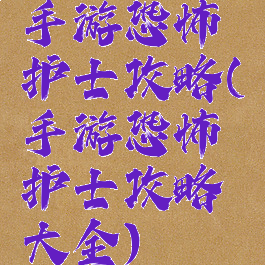 手游恐怖
护士攻略(
手游恐怖
护士攻略
大全)